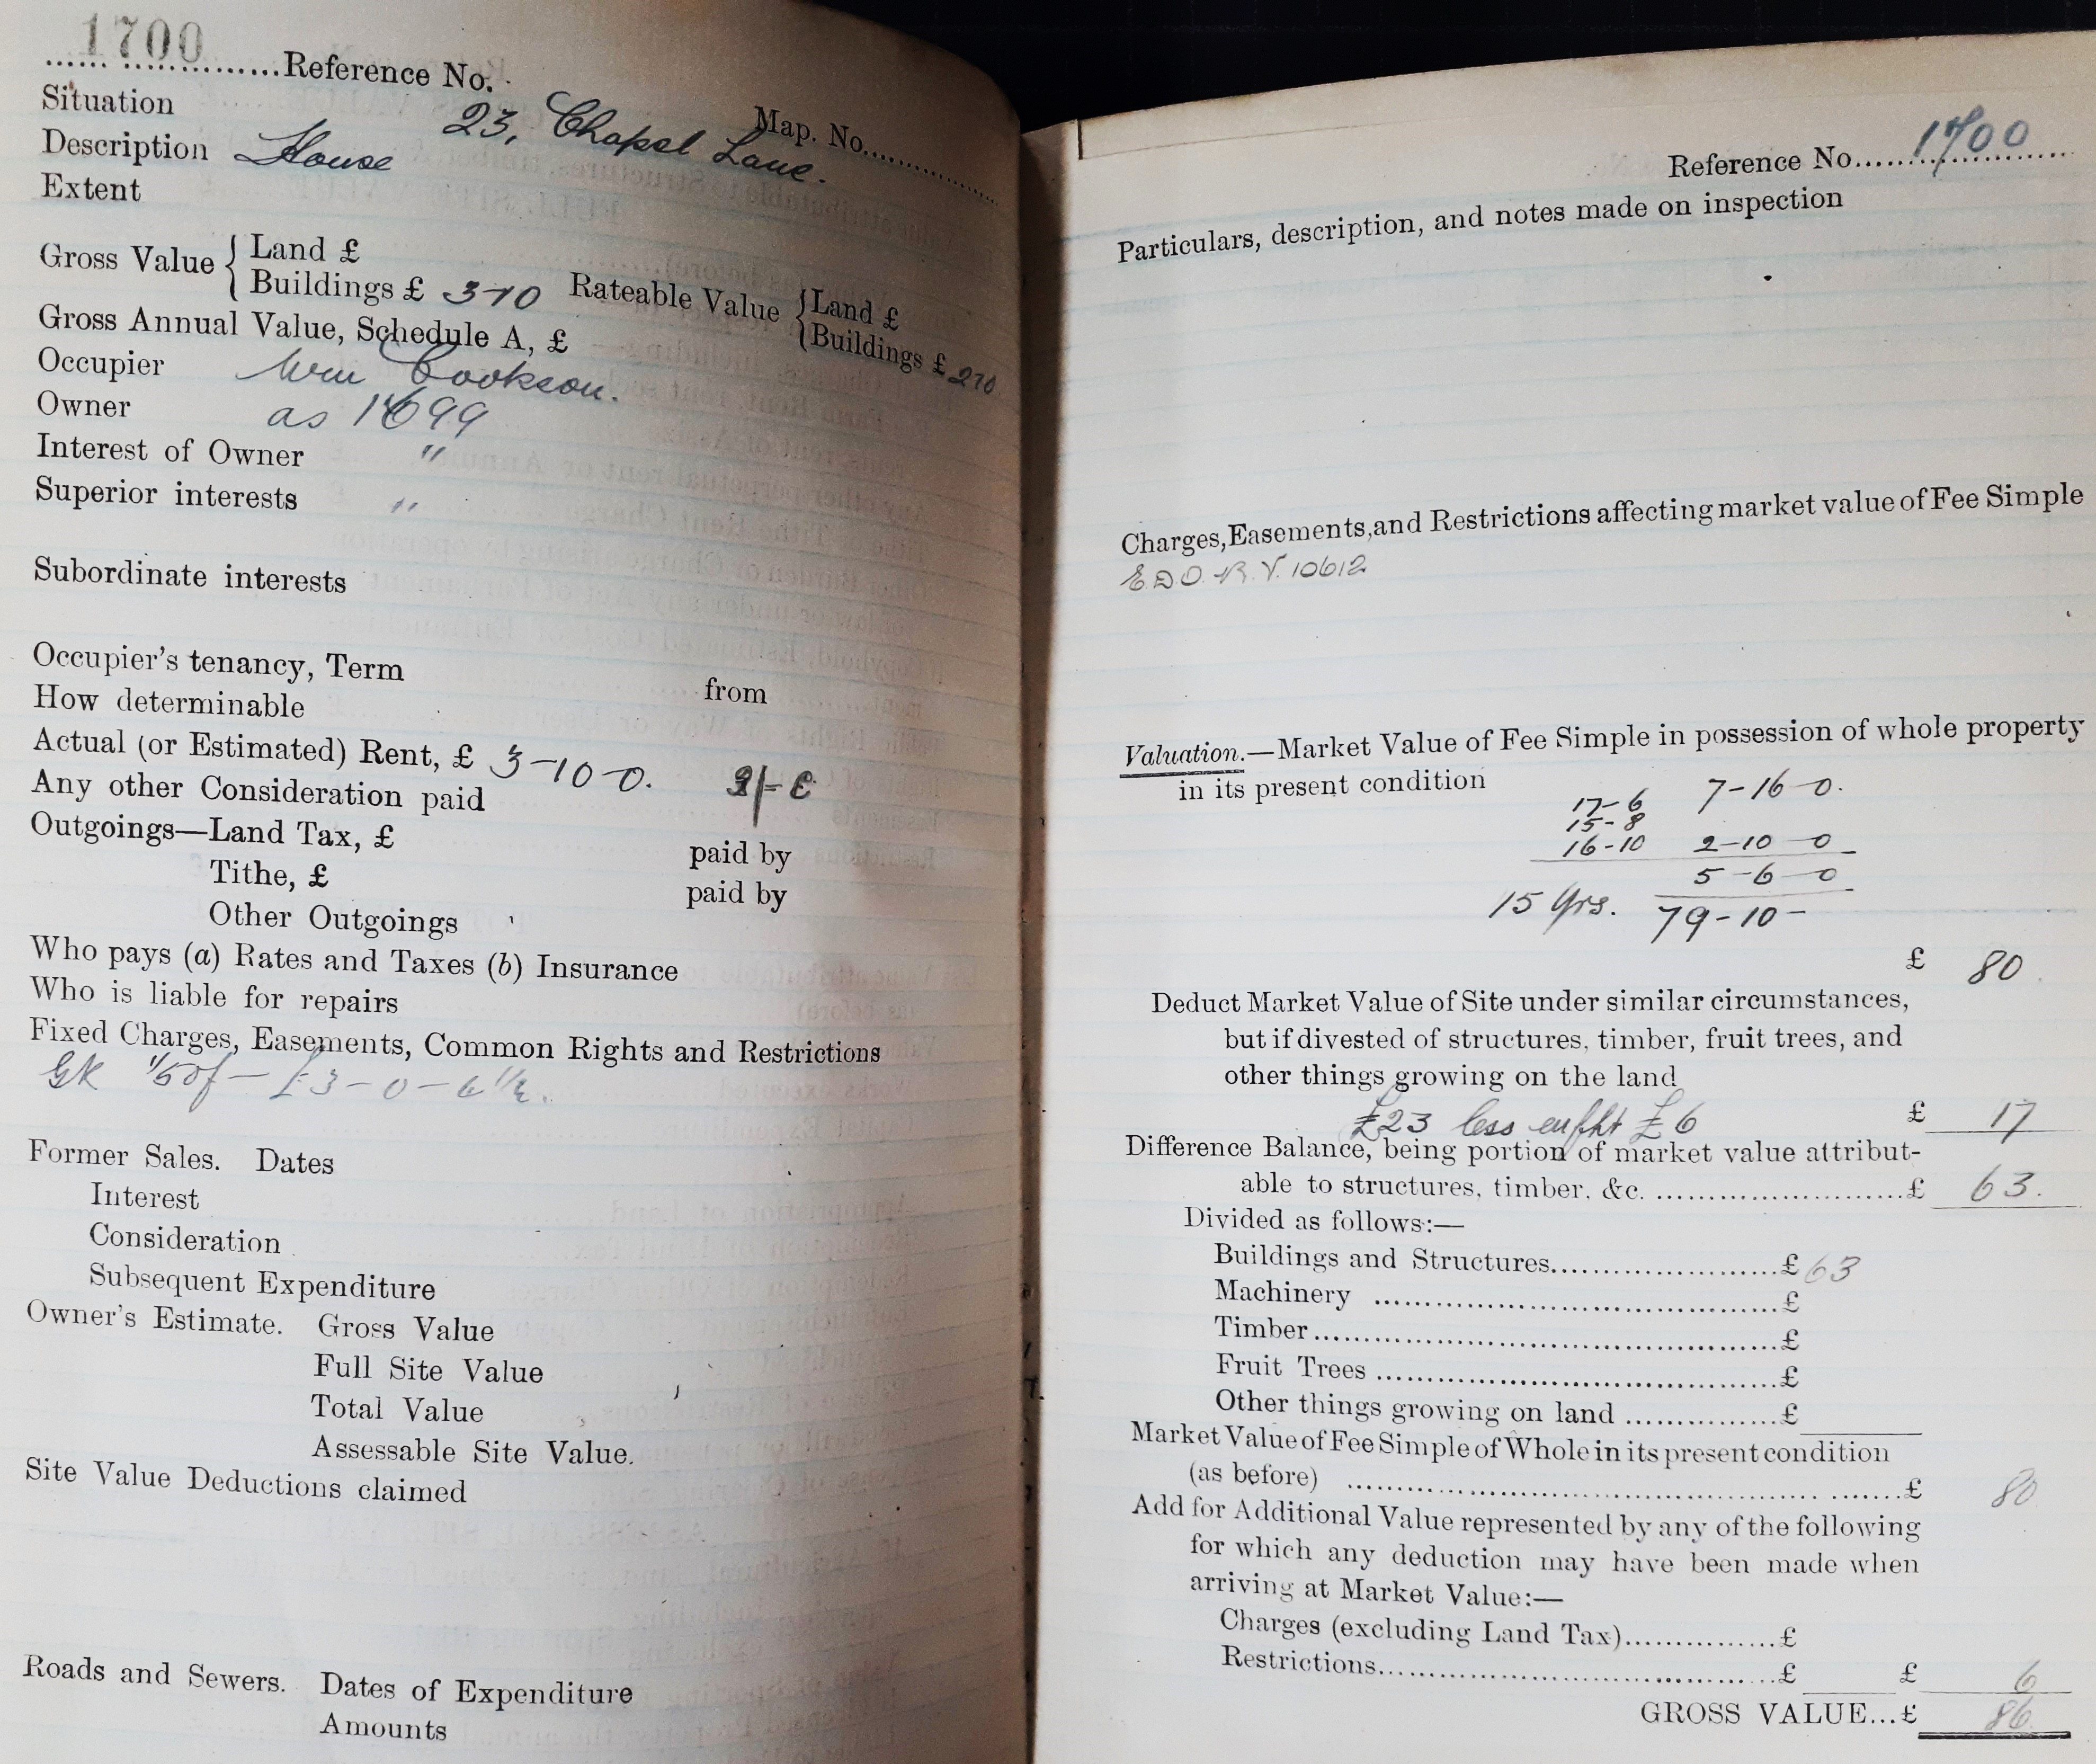 1700
Reference No.
Map. No.
Situation 23, Chapel Lane.
Description House
Extent
Gross Value { Land £
Buildings £ 3-10 Rateable Value { Land £
Buildings £ 2 10
Gross Annual Value, Schedule A, £
Occupier Wm Cookson.
Owner as 1699
Interest of Owner "
Superior interests "
Subordinate interests
Occupier's tenancy, Term from
How determinable
Actual (or Estimated) Rent, £ 3-10-0.
Any other Consideration paid
Outgoings—Land Tax, £ paid by
Tithe, £ paid by
Other Outgoings
Who pays (a) Rates and Taxes (b) Insurance
Who is liable for repairs
Fixed Charges, Easements, Common Rights and Restrictions
of - £3-0-6½.
Former Sales. Dates
Interest
Consideration
Subsequent Expenditure
Owner's Estimate. Gross Value
Full Site Value
Total Value
Assessable Site Value.
Site Value Deductions claimed
Roads and Sewers. Dates of Expenditure
Amounts
Reference No. 1700
Particulars, description, and notes made on inspection
Charges, Easements, and Restrictions affecting market value of Fee Simple
10612
Valuation.—Market Value of Fee Simple in possession of whole property
in its present condition
17-6 7-16-0.
15-8
16-10 2-10-0
5-6-0
15 Yrs. 79-10-
£ 80
Deduct Market Value of Site under similar circumstances,
but if divested of structures, timber, fruit trees, and
other things growing on the land
£23 less £6 £ 17
Difference Balance, being portion of market value attribut-
able to structures, timber, &c. £ 63.
Divided as follows:—
Buildings and Structures £ 63
Machinery £
Timber £
Fruit Trees £
Other things growing on land £
Market Value of Fee Simple of Whole in its present condition
(as before) £ 80
Add for Additional Value represented by any of the following
for which any deduction may have been made when
arriving at Market Value:—
Charges (excluding Land Tax) £
Restrictions £ £ 6
GROSS VALUE...£ 86